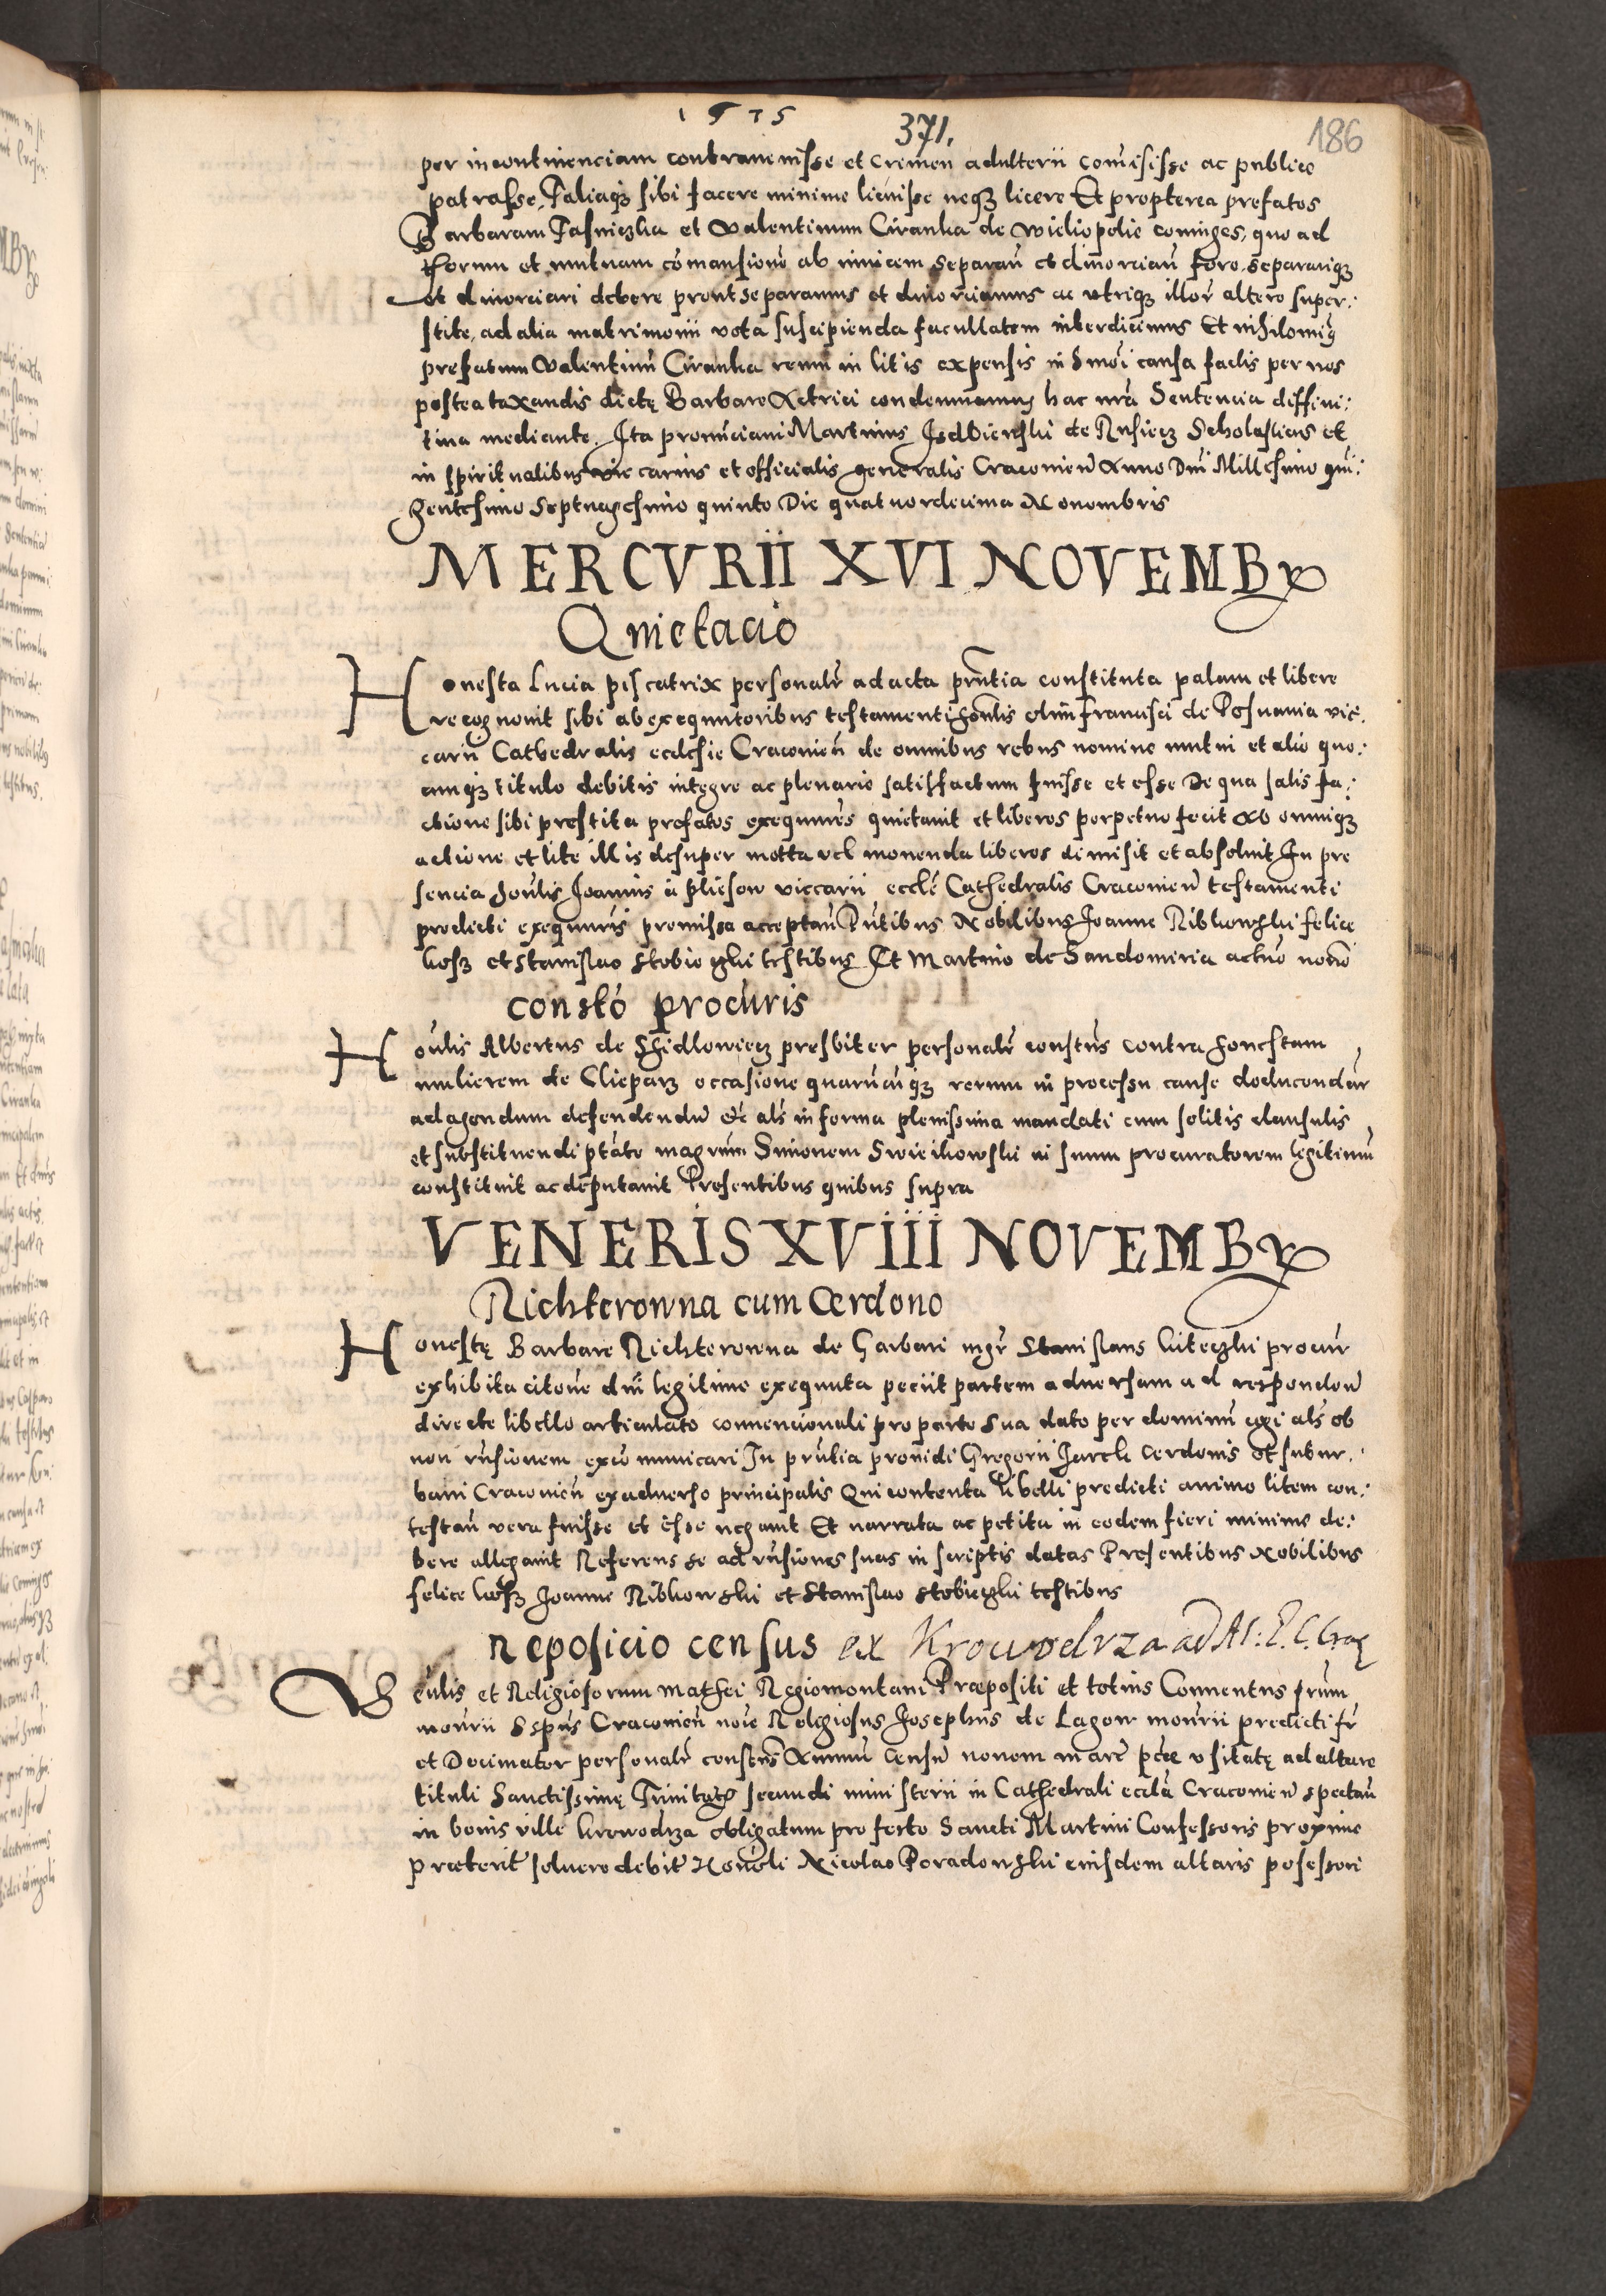 1575
371.
186
per incontinenciam contravenisse et crimen adulterii comisisse ac publice
patrasse, Taliaqꝫ sibi facere minime licuisse neqꝫ licere Et propterea prefatos
Barbaram et Valentinum Ciranka de Wieliopolie coniuges, quo ad
thorum et mutuam cōmansionē ab invicem separan̄ et divorcian̄ fore, separariqꝫ
et divorciari debere prout separamus et divorciamus ac utriqꝫ illor̄ altero super:
stite, ad alia matrimonii vota suscipienda facultatem interdicimus Et nihilomiꝰ
prefatum Valentinū Ciranka reum in litis expensis in hmōi causa factis per nos
postea taxandis dictę Barbare Actrici condemnamus hac nrā Sentencia diffini:
tiva mediante. Ita pronunciavi Martinus Isdbienski de Rusiecz Scholasticus et
in spiritualibus viccarius et officialis generalis Cracovien̄ Anno Dni Millesimo qui:
gentesimo Septuagesimo quinto Die quatuordecima Novembris
MERCVRII XVI NOVEMBꝶ
Quietacio
Honesta Lucia piscatrix personalr̄ ad acta pn̄tia constituta palam et libere
recognovit sibi ab exequutoribus testamenti hon̄lis olim francisci de Posnania vic:
carii Cathedralis ecclesie Cracovien̄ de omnibus rebus nomine mutui et alio quo:
cunqꝫ titulo debitis integre ac plenarie satisfactum fuisse et esse De qua satisfa:
ctione sibi prestita prefatos exequutores quietavit et liberos perpetuo fecit Ab omniqꝫ
actione et lite illis desuper motta vel movenda liberos dimisit et absolvit In pre
sencia hon̄lis Joannis a viccarii eccle Cathedralis Cracovien̄ testamenti
predicti exequutoris premissa acceptan̄ Pn̄tibus Nobilibus Joanne Ribkowski felice
et Stanislao testibus Et Martino de Sandomiria actuō notō
constō procuris
Hon̄lis Albertus de Schidlowiecz presbiter personalr̄ constūs contra honestam
mulierem de Clieparz occasione quarūcūqꝫ rerum in processu cause deducendar̄
ad agendum defendendū etc als in forma plenissima mandati cum solitis clausulis
et substituendi ptate magrum Simonem in suum procuratorem legitimū
constituit ac deputavit Presentibus quibus supra
VENERIS XVIII NOVEMBꝶ
Richterowna cum Cerdone
Honestę Barbare Richterowna de Garbari mgr̄ Stanislaus procur̄
exhibita citōne dnī legitime exequuta peciit partem adversam ad respondend̄
directe libello articulato convencionali pro parte sua dato per dominū cogi als ob
non rn̄sionem excōmunicari In pn̄tia providi Gregorii Jarek Cerdonis et subur:
bani Cracovien̄ ex adverso principalis Qui contenta libelli predicti animo litem con:
testan̄ vera fuisse et esse negavit Et narrata ac petita in eodem fieri minime de:
bere allegavit Referens se ad rn̄siones suas in scriptis datas Presentibus Nobilibus
felice Joanne Ribkowski et Stanislao testibus
Reposicio census ex Krowodrza ad Al: E. C. Crac
Ven̄lis et Religiosorum Mathei Regiomontani Præpositi et totius Conventus frum
Cracovien̄ noīe Religiosus Josephus de Lagow predicti fr̄
et Decimator personalr̄ constūs Annuū Censū novem marc̄ pec̄e usitatę ad altare
tituli Sanctissimę Trinitatis secundi ministerii in Cathedrali eccla Cracovien̄ spectan̄
in bonis ville Krowodrza obligatum pro festo Sancti Martini Confessoris proxime
præterit̄ solvere debit̄ Honōli Nicolao Poradowski eiusdem altaris posessori